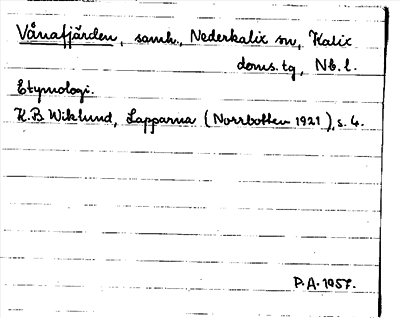 Vånafjärden, samh., Nederkalix sn, Kalix
doms.tg, Nb.l.
Etymologi.
K.B. Wiklund, Lapparna (Norrbotten 1921), s. 4.
P.A. 1957.